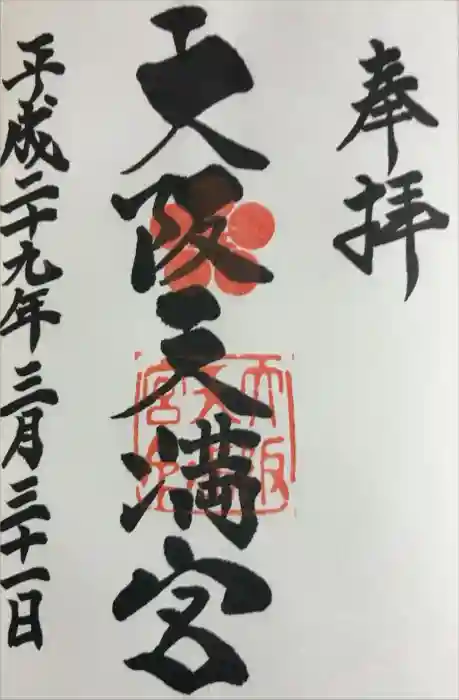 奉拝
大阪天満宮
平成二十九年三月三十一日